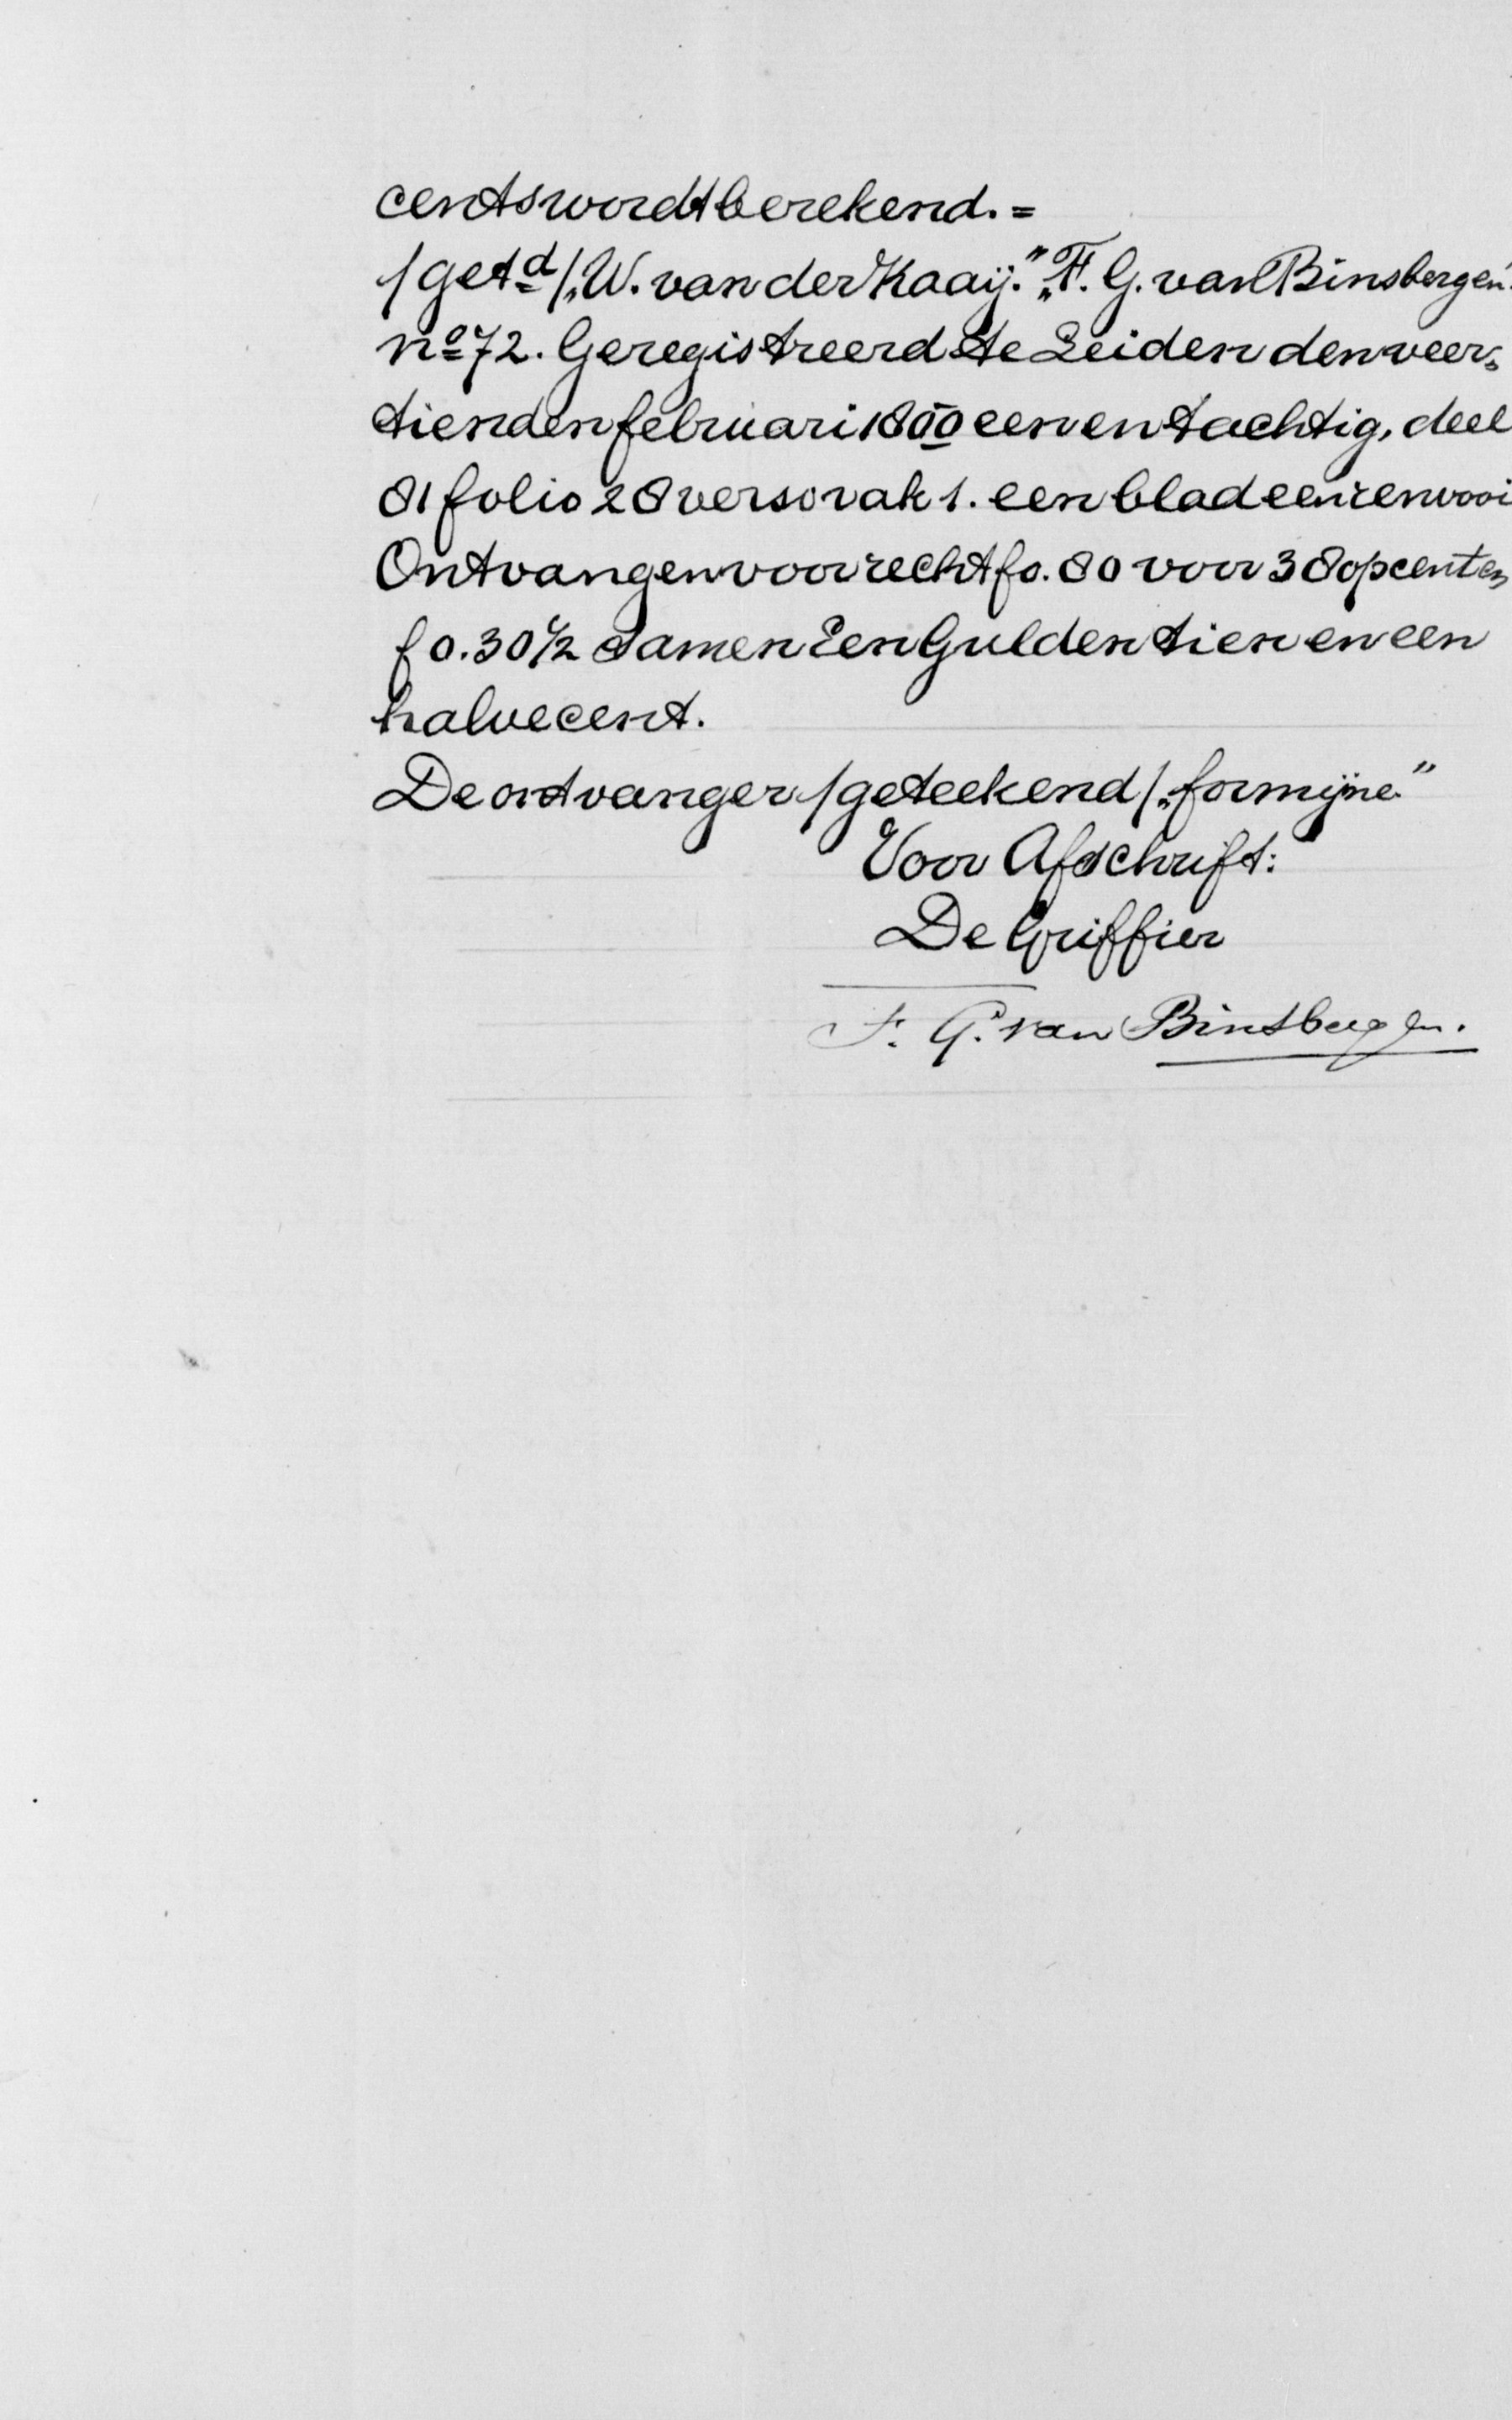 cents wordt berekend. =
/getd/ „W. van der Kaaij.” „F. G. van Binsbergen”.
no 72. Geregistreerd te Leiden den veer„
tienden februari 1800 een en tachtig, deel
81 folio 28 verso vak 1. een blad een renvooi
Ontvangen voor recht fo. 80 voor 38 opcenten
fo. 30 1/2 samen Een Gulden tien en een
halve cent.
De ontvanger /geteekend/ „formijne”
Voor Afschrift:
De Griffier
F. G. van Binsbergen.